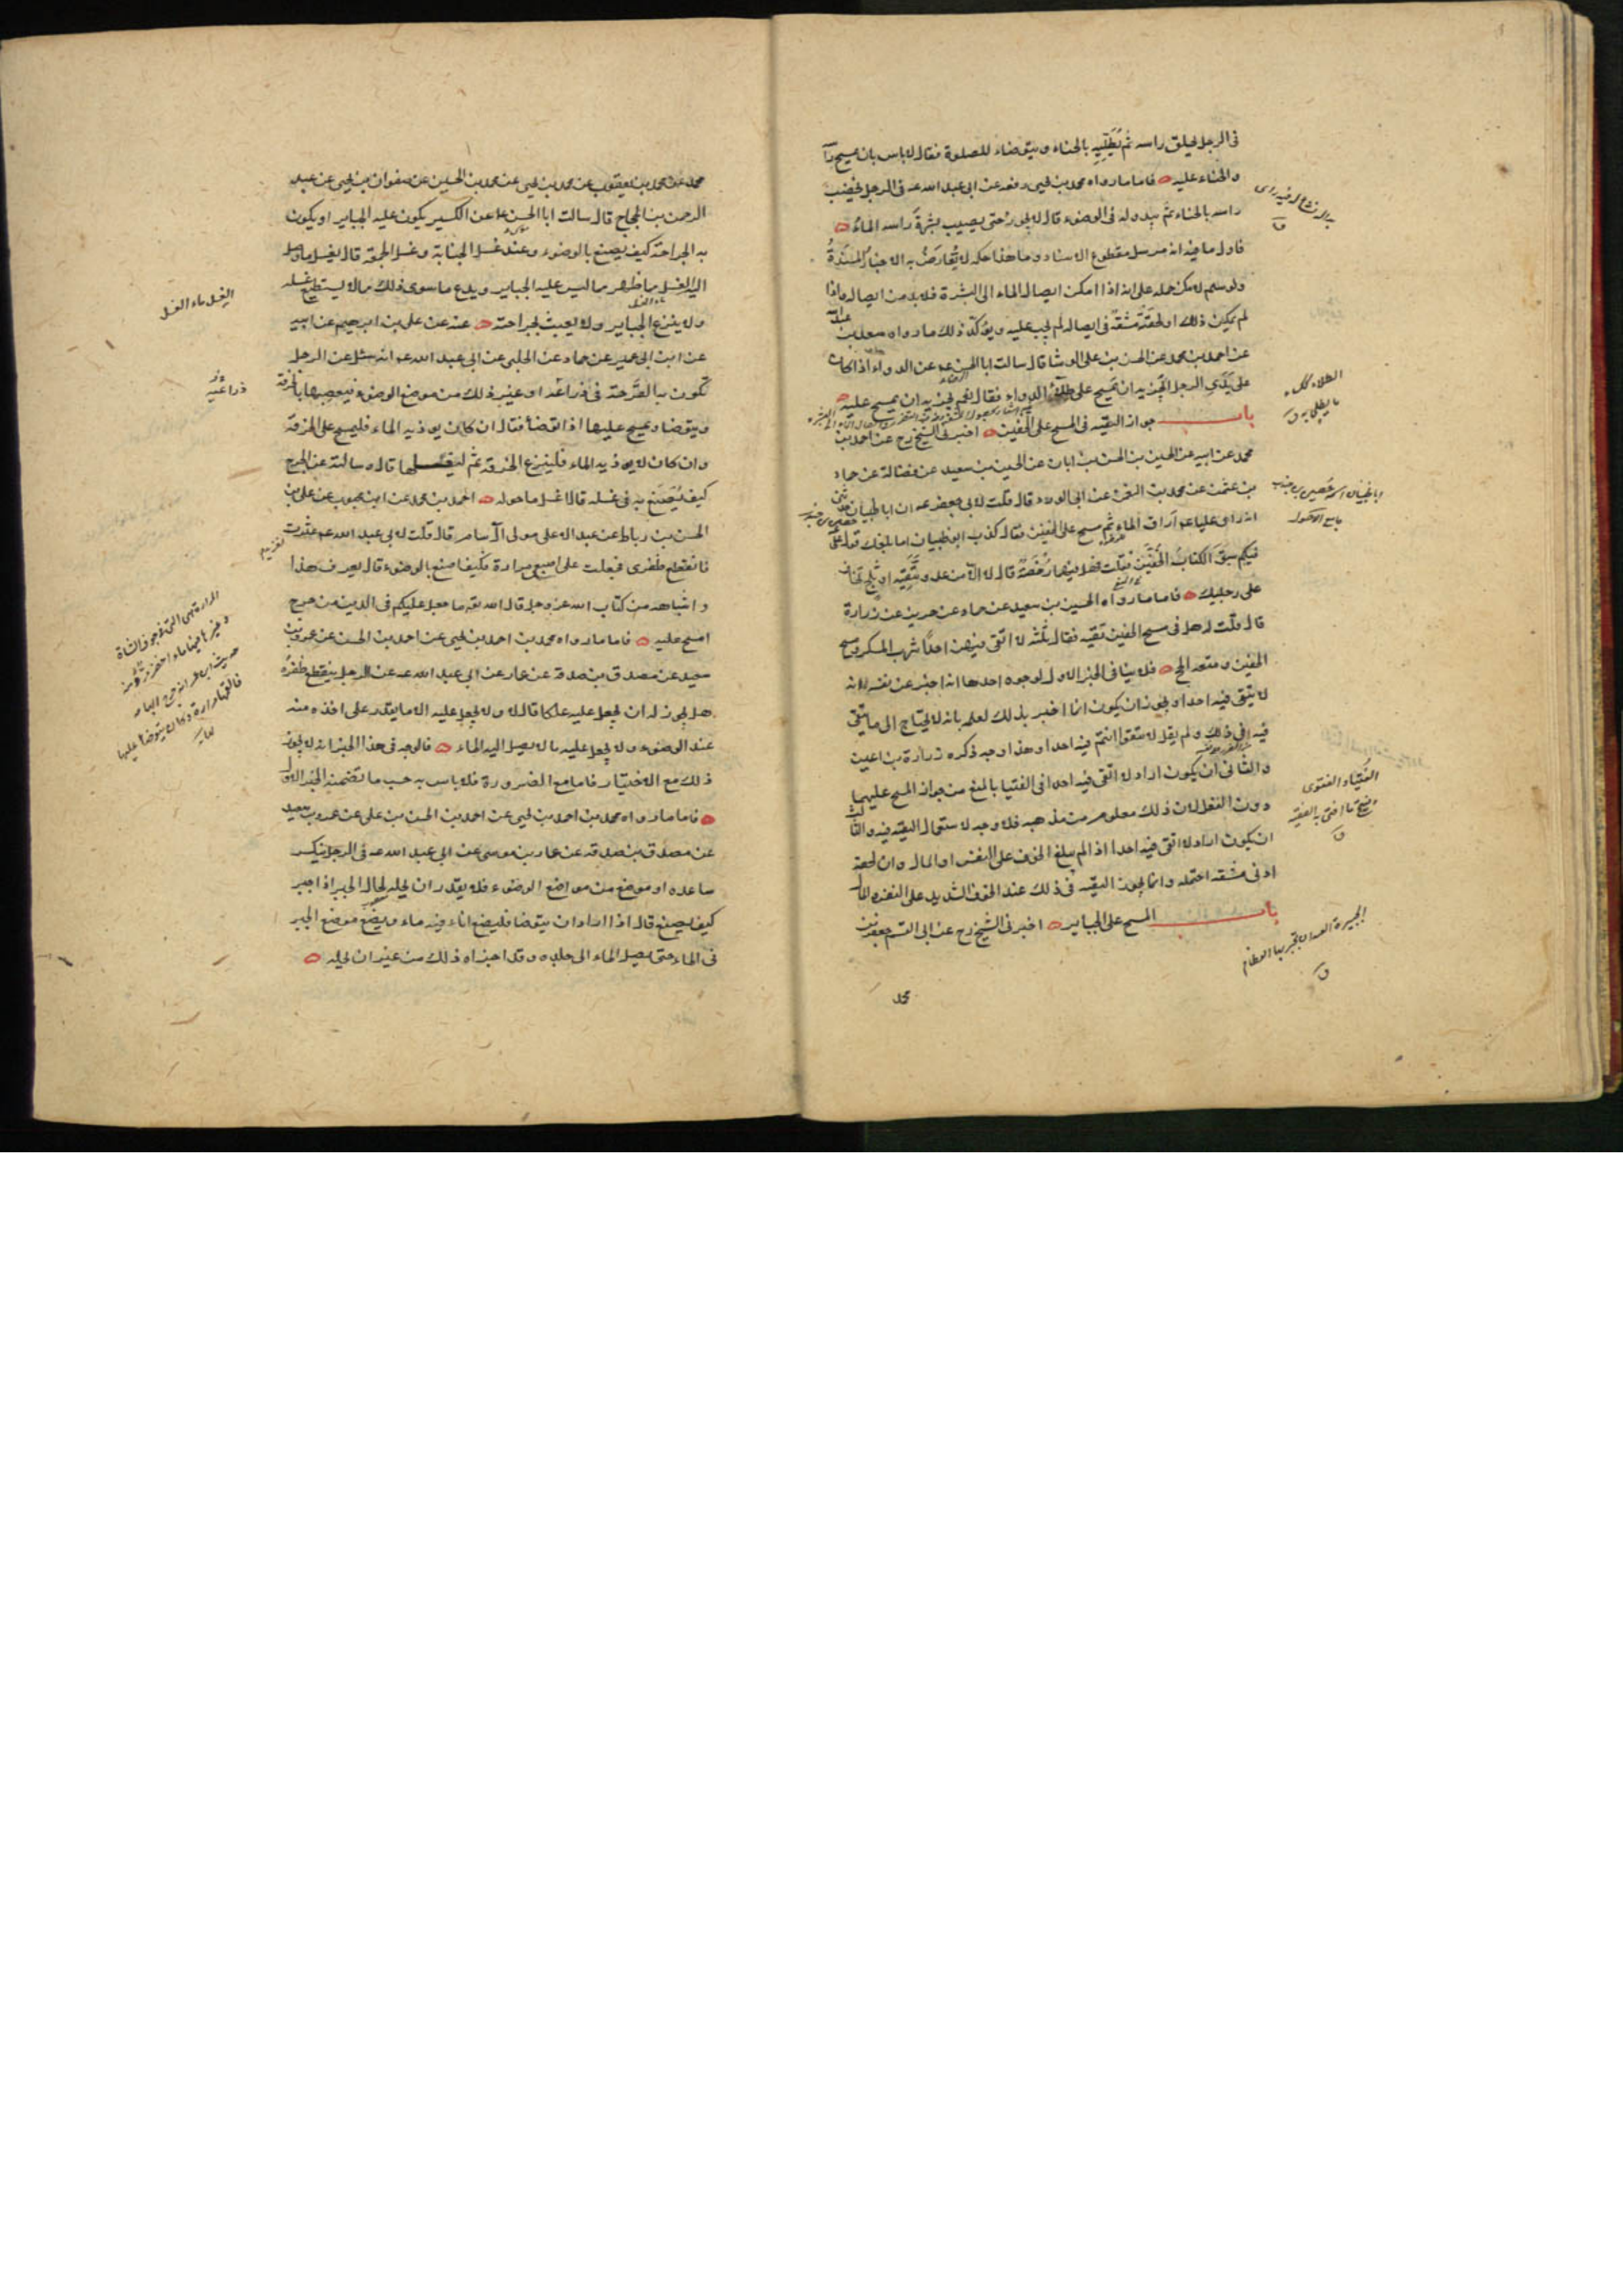 فى الرجل يحلق راسه ثم يَطْلِيهِ بالحناء و يتوضاء للصلوة فقال لا باس بان يمسح راسه
والحناء عليه فاما ما رواه محمد بن يحيى رفعه عن ابى عبد الله عه فى الرجل يخضب
راسه بالحناء ثم يبدو له فى الوضوء قال لا يجوز حتى يصيب بشرةَ راسه الماءُ
فاول ما فيه انه مرسل مقطوع الاسناد وما هذا حكمه لا يُعارَضُ به الاخبارُ المسنَدةُ
ولو سلم لامكن حمله على انه اذا امكن ايصال الماء الى البشرة فلابد من ايصاله واذا
لم يمكن ذلك او لحقتهُ مشقةٌ فى ايصاله لم يجب عليه ويؤكّد ذلك ما رواه سعد بن عبدالله
عن احمد بن محمد عن الحسن بن على الوشا قال سالت ابا الحسن عه عن الدواء اذا كان
على يَدَىِ الرجل ايُجزيه ان يمسح على طلاء الدواء فقال نعم يجزيه ان يمسح عليه
باب جواز التقيّه فى المسح على الخفين اخبرنى الشيخ رح عن احمد بن
محمد عن ابيه عن الحسين بن الحسن بن ابان عن الحسين بن سعيد عن فضالة عن حماد
بن عثمن عن محمد بن النعمن عن ابى الورد قال قلت لابى جعفر عه ان ابا ظبيان حدثنى
انه راى عليا عه اراق الماء ثم مسح على الخفين فقال كذب ابو ظبيان اما بلغك قول على
فيكم سبقَ الكتابُ الخُفَّيَن فقلت فهل فيهما رُخصَةٌ قال لا الّا من عدو تَتَّقيه او ثلج تخاف
على رجليك فاما ما رواه الحسين بن سعيد عن حماد عن حريز عن زرارة
قال قلت له هل فى مسح الخفين تقيه فقال ثلثه لا اتّقى فيهن احدًا شرب المسكر ومسح
الخفين ومتعه الحج فلا ينافى الخبر الاول لوجوه احدها انه اخبر عن نفسه انه
لا يتقى فيه احدا ويجوز ان يكون انما اخبر بذلك لعلمه بانه لا يحتاج الى ما يتقى
فيه فى ذلك ولم يقل لا تتقوا انتم فيه احدا وهذا وجه ذكره زرارة بن اعين
والثانى ان يكون اراد لا اتّقى فيه احدا فى الفتيا بالمنع من جواز المسح عليهما
دون الفعل لان ذلك معلوم من مذهبه فلا وجه لاستعمال التقيّه فيه والثالث
ان يكون اراد لا اتّقى فيه احدا اذا لم يبلغ الخوف على النفس او المال وان لحقه
ادنى مشقه احتمله وانما يجوز التقيّه فى ذلك عند الخوف الشديد على النفس والمال
باب المسح على الجباير اخبرنى الشيخ رح عن ابى القسم جعفر بن
محمد
ابا ظبيان اسمه حصين بن جندب
جامع الاصول
الطلاء ككساء
ما يطلى به ق
الفتيا والفتوى
وتفتح ما افتى به الفقيه
ق
الجبيرة العيدان تجبر بها العظام
ق
محمد عن محمد بن يعقوب عن محمد بن يحيى عن محمد بن الحسين عن صفوان بن يحيى عن عبد
الرحمن بن الحجاج قال سالت ابا الحسن عه عن الكسير يكون عليه الجباير او يكون
به الجراحة كيف يصنع بالوضوء وعند غسل الجنابة وغسل الجمعة قال يغسل ما وصل
اليه الغسل مما ظهر مما ليس عليه الجباير ويدع ما سوى ذلك مما لا يستطيع غسله
ولا ينزع الجباير ولا يعبث بجراحته عنه عن على بن ابرهيم عن ابيه
عن ابن ابى عمير عن حماد عن الحلبى عن ابى عبد الله عه انه سئل عن الرجل
تكون به القَرحة فى ذراعه او غير ذلك من موضع الوضوء فيعصبها بالخرقة
ويتوضا ويمسح عليها اذا توضأ فقال ان كان يوذيه الماء فليمسح على الخرقة
وان كان لا يوذيه الماء فلينزع الخرقة ثم ليغسلها قال وسالته عن الجرح
كيف يُصَنع به فى غسله قال اغسل ما حوله احمد بن محمد عن ابن محبوب عن على بن
الحسن بن رباط عن عبد الاعلى مولى آل سام قال قلت لابى عبد الله عه عثرت
فانقطع ظفرى فجعلت على اصبعى مرارة فكيف اصنع بالوضوء قال يعرف هذا
واشباهه من كتاب الله عز وجل قال الله تع ما جعل عليكم فى الدين من حرج
امسح عليه فاما ما رواه محمد بن احمد بن يحيى عن احمد بن الحسن عن عمرو بن
سعيد عن مصدق بن صدقة عن عمار عن ابى عبد الله عه عن الرجل ينقطع ظفره
هل يجوز له ان يجعل عليه علكا قال لا ولا يجعل عليه الا ما يقدر على اخذه منه
عند الوضوء ولا يجعل عليه ما لا يصل اليه الماء فالوجه فى هذا الخبر انه لا يجوز
ذلك مع الاختيار فاما مع الضرورة فلا باس به حسب ما تضمنه الخبر الاول
فاما ما رواه محمد بن احمد بن يحيى عن احمد بن الحسن بن على عن عمرو بن سعيد
عن مصدق بن صدقه عن عمار بن موسى عن ابى عبد الله عه فى الرجل ينكسر
ساعده او موضع من مواضع الوضوء فلا يقدر ان يحله لحال الجبر اذا جبر
كيف يصنع قال اذا اراد ان يتوضا فليضع اناء فيه ماء ويضع موضع الجبر
فى الماء حتى يصل الماء الى جلده وقد اجزاه ذلك من غير ان يحله
الغسل ماء الغسل
ذراعيه